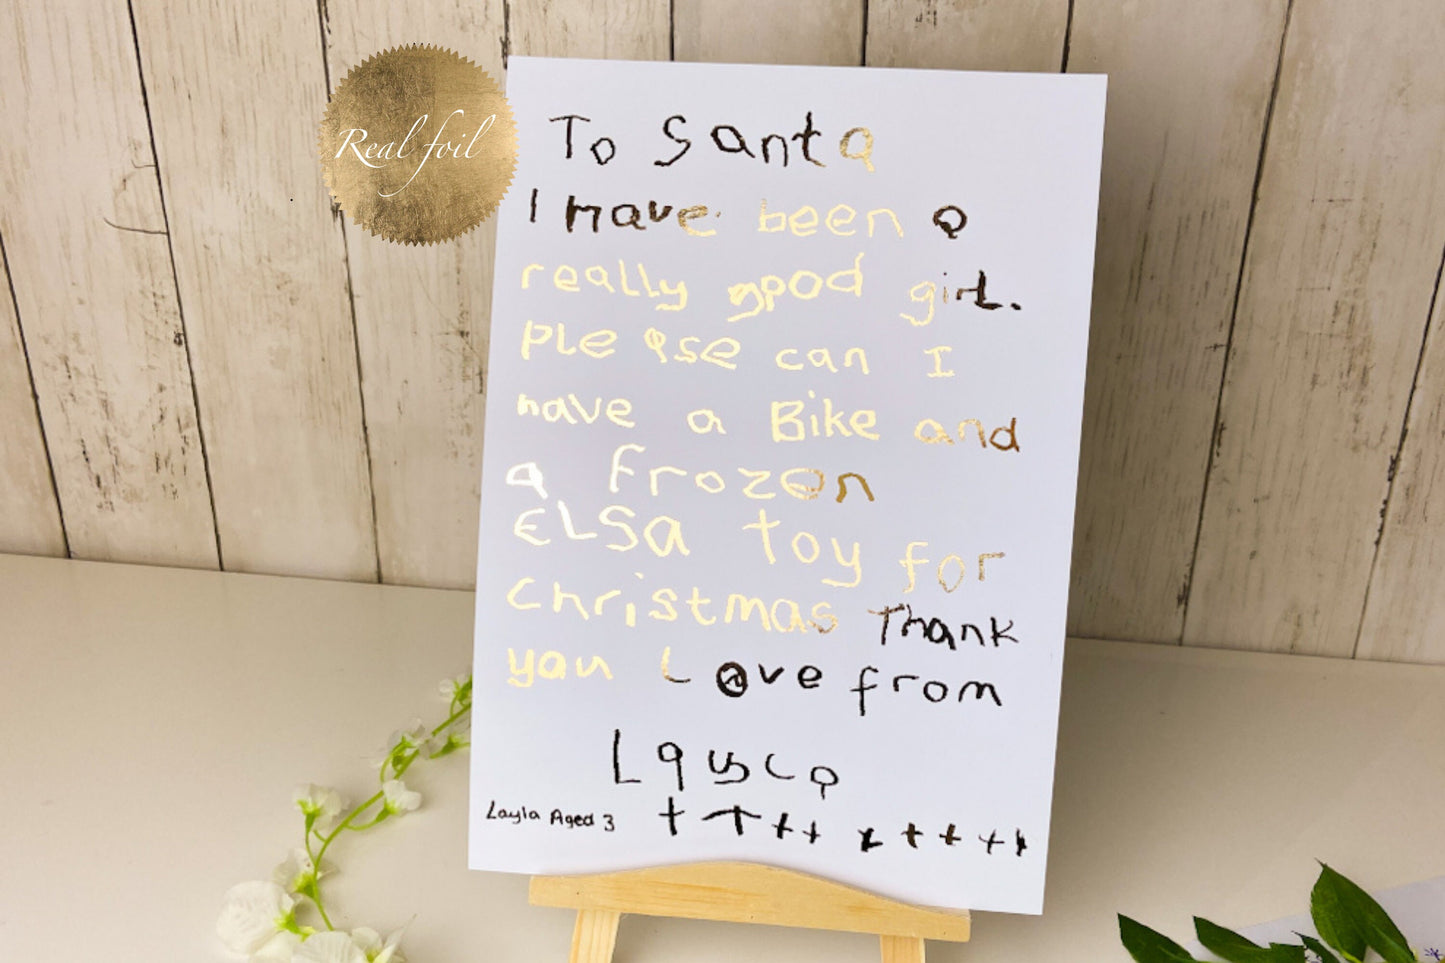 Real foil
To Santa
I have been a
really good girl.
Please can I
have a Bike and
a Frozen
ELSa Toy for
Christmas Thank
you Love from
Layla Aged 3